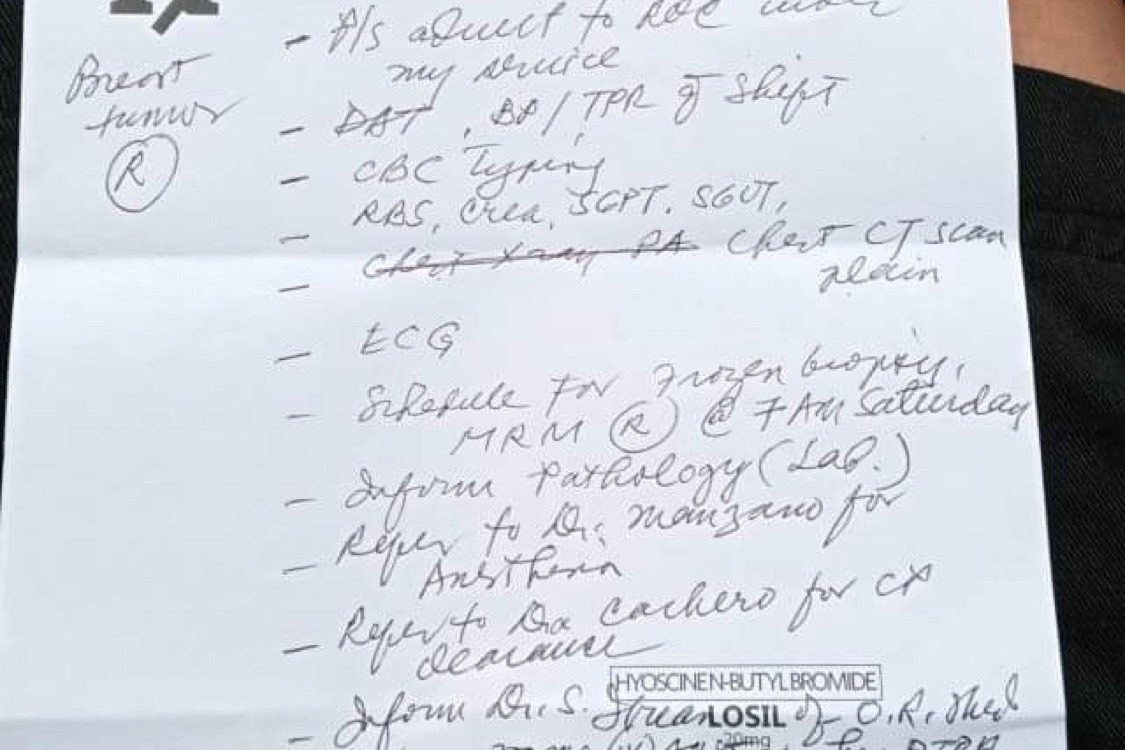 Breast
tumor
R
- Pls admit to ROC under
my service
- DAT, BP/TPR q shift
- CBC Typing
- RBS, Crea, SGPT, SGOT,
- Chest Xray PA Chest CT scan
plain
- ECG
- Schedule For Frozen biopsy,
MRM R @ 7 AM Saturday
- Inform Pathology (Lab.)
- Refer to Dr. Manzano for
Anesthesia
- Refer to Dra Cachero for CP
clearance
HYOSCINE N-BUTYLBROMIDE
- Inform Dr. S. of O.R. Sked
LOSIL
20mg